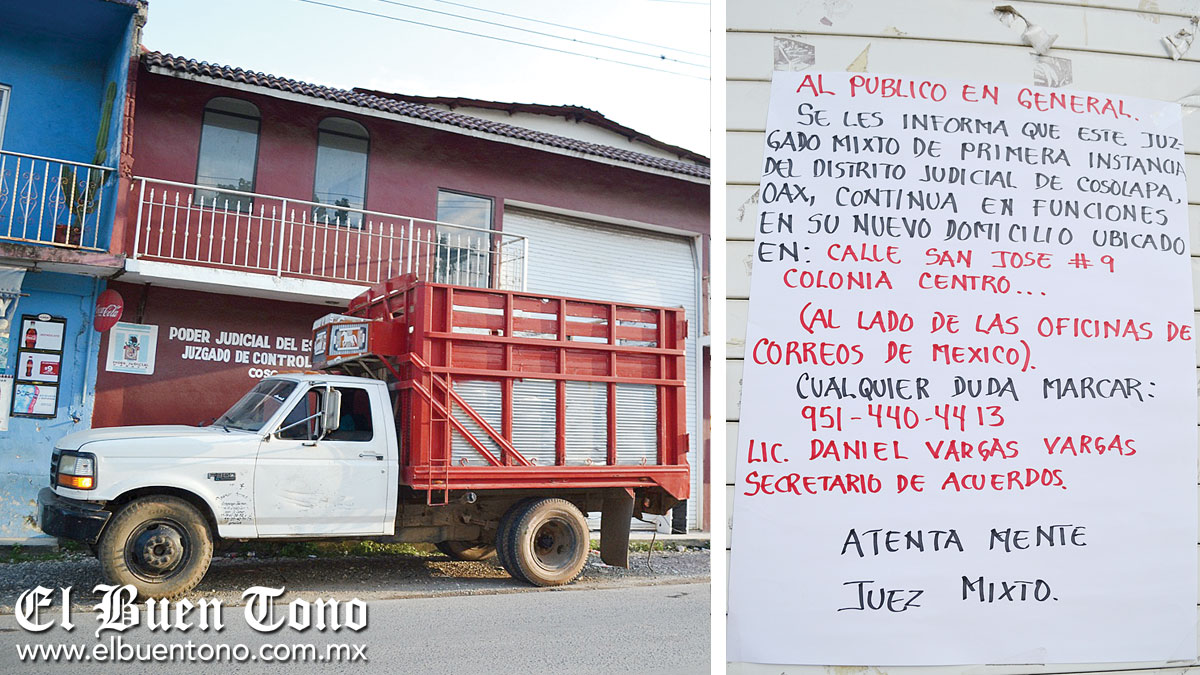 Coca-Cola
PODER JUDICIAL DEL ES
JUZGADO DE CONTROL
COSO
El Buen Tono
www.elbuentono.com.mx
AL PUBLICO EN GENERAL.
SE LES INFORMA QUE ESTE JUZ-
GADO MIXTO DE PRIMERA INSTANCIA
DEL DISTRITO JUDICIAL DE COSOLAPA,
OAX, CONTINUA EN FUNCIONES
EN SU NUEVO DOMICILIO UBICADO
EN: CALLE SAN JOSE #9
COLONIA CENTRO...
(AL LADO DE LAS OFICINAS DE
CORREOS DE MEXICO).
CUALQUIER DUDA MARCAR:
951-440-4413
LIC. DANIEL VARGAS VARGAS
SECRETARIO DE ACUERDOS.
ATENTA MENTE
JUEZ MIXTO.